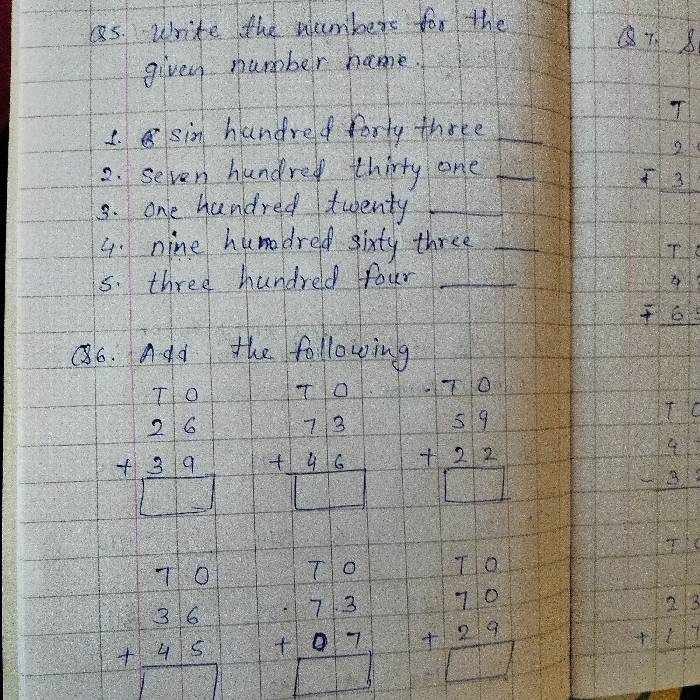 Q5. Write the numbers for the
given number name.
1. sin hundred forty three ___
2. seven hundred thirty one ___
3. one hundred twenty ___
4. nine hundred sixty three ___
5. three hundred four ___
Q6. Add the following
T O T O T O
2 6 7 3 5 9
+ 3 9 + 4 6 + 2 2
T O T O T O
3 6 7 3 7 0
+ 4 5 + 0 7 + 2 9
Q7.
T
+ 3
T
+ 6
T
4
- 3
T
2 3
+ 1